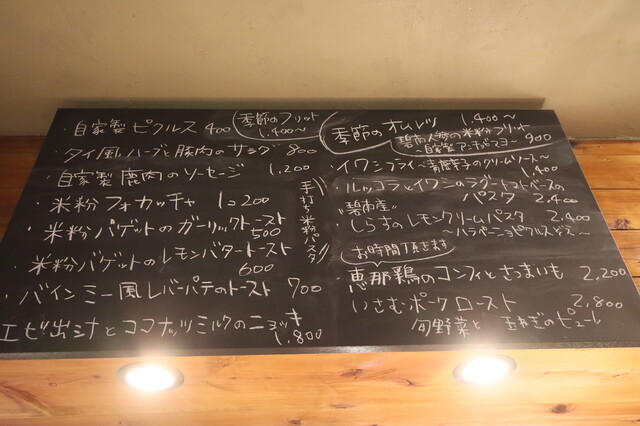 ・自家製ピクルス 400
季節のフリット
1,400〜
・タイ風ハーブと豚肉のサラダ 800
・自家製鹿肉のソーセージ 1,200
・米粉フォカッチャ 1コ200
・米粉バゲットのガーリックトースト
500
・米粉バゲットのレモンバタートースト
600
・バインミー風レバーパテのトースト 700
エビ出汁とココナッツミルクのニョッキ
1,800
手打ち米粉パスタ
季節のオムレツ 1,400〜
碧南人参の米粉フリット
900
・イワシフライ〜青唐辛子のクリームソース〜
1,400
・ルッコラとイワシのラグートマトベースの
パスタ 2,400
"碧南産"
・しらすのレモンクリームパスタ 2,400
〜ハラペーニョピクルス添え〜
お時間頂きます
恵那鶏のコンフィとさつまいも 2,200
いさむポークロースト 2,800
旬野菜と玉ねぎのピューレ